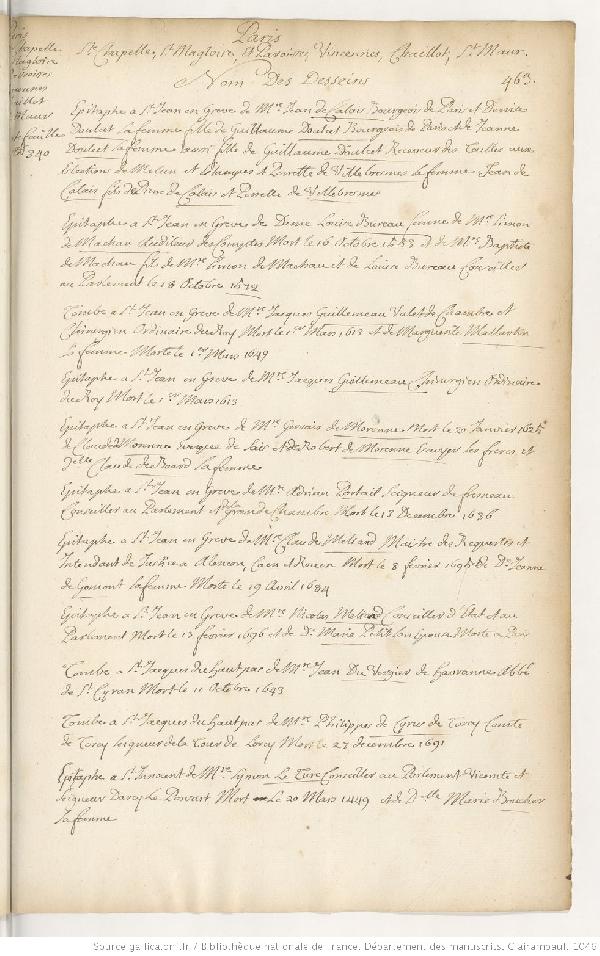 Paris
Ste Chapelle, St Magloire, St Paroisse, Vincennes, Chaillot, St Maur.
Nom Des Desseins 463.
Epitaphe a St Jean en Greve de Mre Jean de Calois Bourgeois de Paris et Denise
Doulcet sa femme fille de Guillaume Doulcet Bourgeois de Paris et de Jeanne
Doulcet sa femme aussi fille de Guillaume Doulcet Receveur des Tailles aux
Elections de Melun et et Perrette de Villebresnes sa femme Jean de
Calais fils de de Calais et Perrette de Villebresmes
Epitaphe a St Jean en Greve de Dame Louise Bureau femme de Mre Simon
de Machau Auditeur des Comptes Mort le 16 Octobre et de Mre Baptiste
de Machau fils de Mre Simon de Machau et de Louise Bureau Conseiller
au Parlement le 18 Octobre
Tombe a St Jean en Greve de Mre Jacques Guillemeau Valet de Chambre et
Chirurgien Ordinaire du Roy Mort le 1er Mars 1613 et de Marguerite Malhantin
sa femme Morte le 1er Mars 1649
Epitaphe a St Jean en Greve de Mre Jacques Guillemeau Chirurgien Ordinaire
du Roy Mort le 1er Mars 1613
Epitaphe a St Jean en Greve de Mre Gervais de Morenne Mort le 20 Janvier 1625
de Claude de Morenne evesque de Sais et de Robert de Morenne ses freres et
Delle Claude de Board sa femme
Epitaphe a St Jean en Greve de Mre Adrien Portail Seigneur de
Conseiller au Parlement et Grande Chambre Mort le 13 Decembre 1636
Epitaphe a St Jean en Greve de Mre Claude Melliand Maistre des Requestes et
Intendant de Justice a Alencon, Caen et Rouen Mort le 8 fevrier 1695 et de De Jeanne
de Gomont sa femme Morte le 19 Avril 1684
Epitaphe a St Jean en Greve de Mre Nicolas Melliand Conseiller d'Etat et au
Parlement Mort le 13 fevrier 1696 et de De Marie Petit son Epouse Morte a Paris
Tombe a St Jacques du hautpas de Mre Jean Du Verzier de hauranne Abbé
de St Cyran Mort le 11 Octobre 1643
Tombe a St Jacques du hautpas de Mre Philippes de de Torcy Comte
de Torcy Seigneur de la Tour de Mort le 27 decembre 1691
Epitaphe a St Innocent de Mre Simon Le Turc Conseiller au Parlement Vicomte et
Seigneur Mort le 20 Mars 1449 et de Delle Marie Boucher
sa femme
340
Source gallica.bnf.fr / Bibliothèque nationale de France. Département des manuscrits. Clairambault 1046